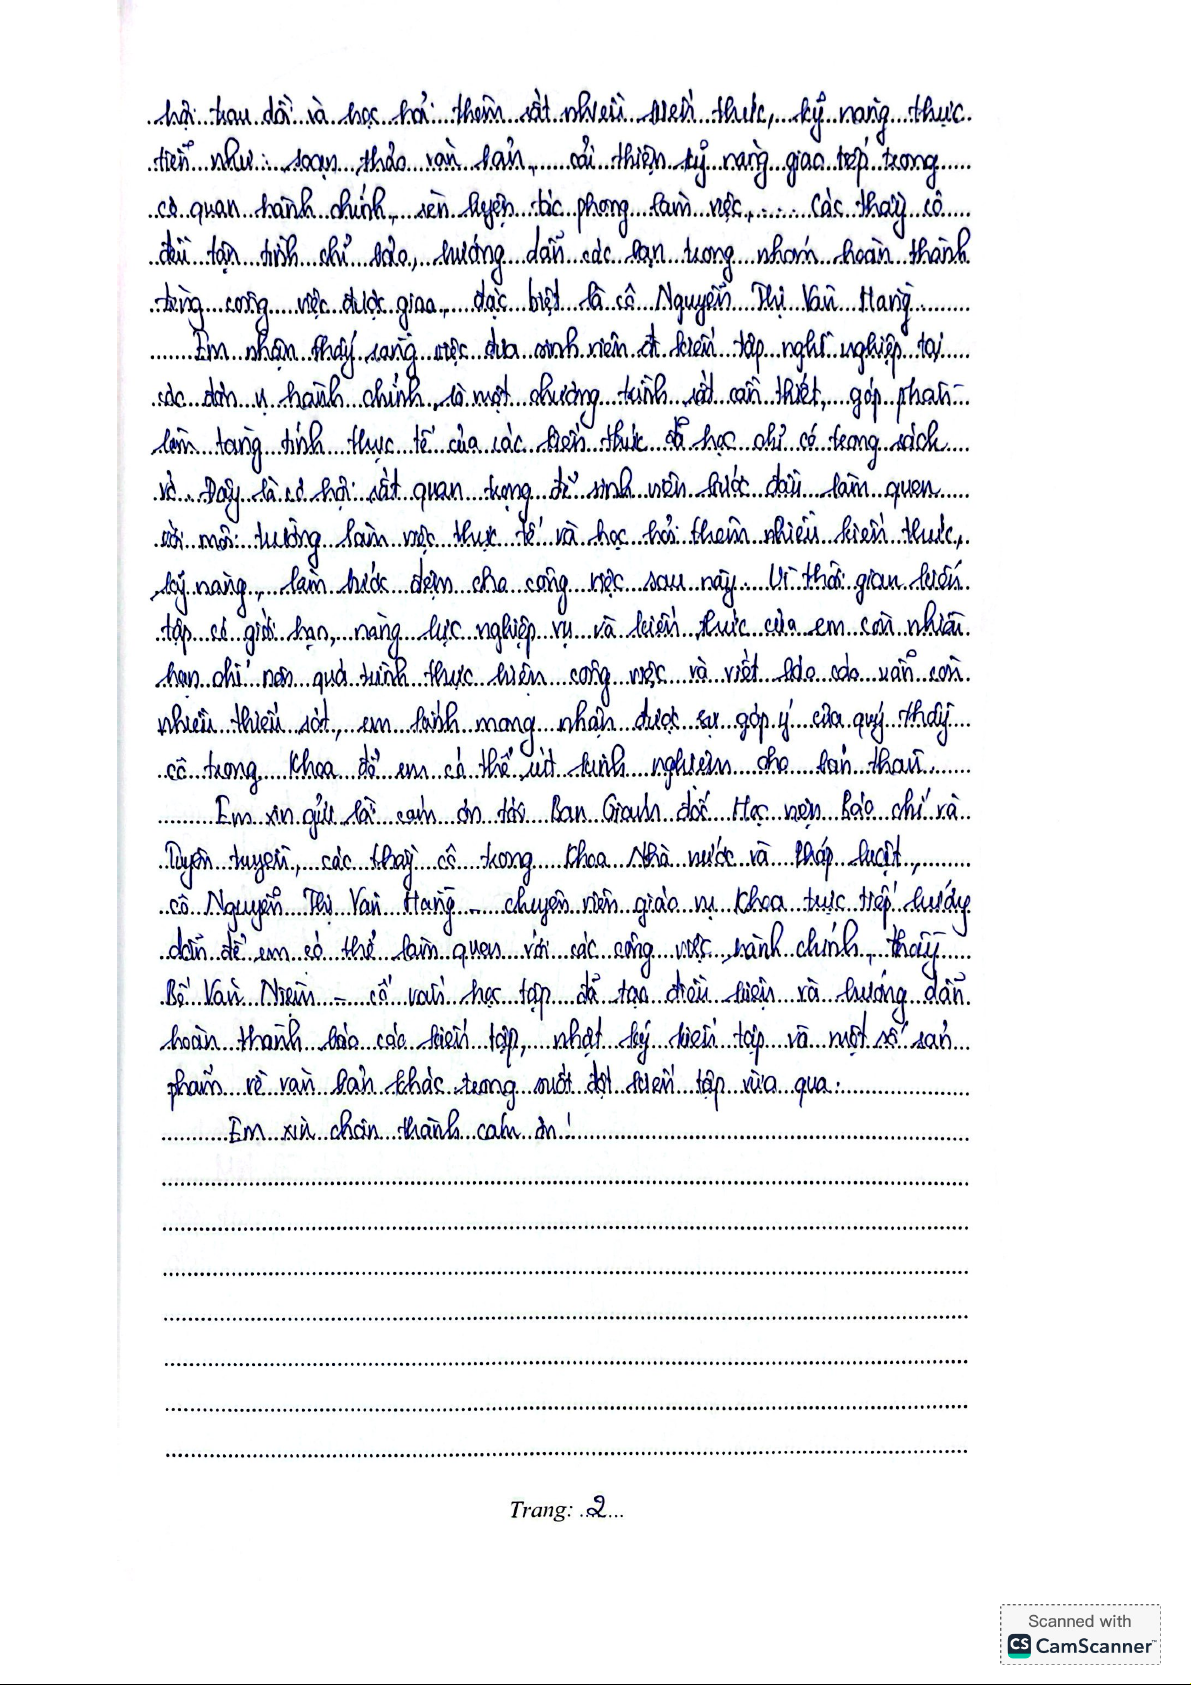 hội trau dồi và học hỏi thêm rất nhiều kiến thức, kỹ năng thực
tiễn như: soạn thảo văn bản, cải thiện kỹ năng giao tiếp trong
cơ quan hành chính, rèn luyện tác phong làm việc,... Các thầy cô
đều tận tình chỉ bảo, hướng dẫn các bạn trong nhóm hoàn thành
từng công việc được giao, đặc biệt là cô Nguyễn Thị Vân Hằng
Em nhận thấy rằng việc đưa sinh viên đi kiến tập nghề nghiệp tại
các đơn vị hành chính là một chương trình rất cần thiết, góp phần
làm tăng tính thực tế của các kiến thức đã học chỉ có trong sách
vở. Đây là cơ hội rất quan trọng để sinh viên bước đầu làm quen
với môi trường làm việc thực tế và học hỏi thêm nhiều kiến thức,
kỹ năng, làm bước đệm cho công việc sau này. Vì thời gian kiến
tập có giới hạn, năng lực nghiệp vụ và kiến thức của em còn nhiều
hạn chế nên quá trình thực hiện công việc và viết báo cáo vẫn còn
nhiều thiếu sót, em kính mong nhận được sự góp ý của quý thầy
cô trong Khoa để em có thể rút kinh nghiệm cho bản thân.
Em xin gửi lời cảm ơn tới Ban Giám đốc Học viện Báo chí và
Tuyên truyền, các thầy cô trong Khoa Nhà nước và Pháp luật,
cô Nguyễn Thị Vân Hằng - chuyên viên giáo vụ Khoa trực tiếp hướng
dẫn để em có thể làm quen với các công việc hành chính, thầy
Bế Văn Niệm - cố vấn học tập đã tạo điều kiện và hướng dẫn
hoàn thành báo cáo kiến tập, nhật ký kiến tập và một số sản
phẩm về văn bản khác trong suốt đợt kiến tập vừa qua.
Em xin chân thành cảm ơn!
Trang: 2
Scanned with
CS CamScanner